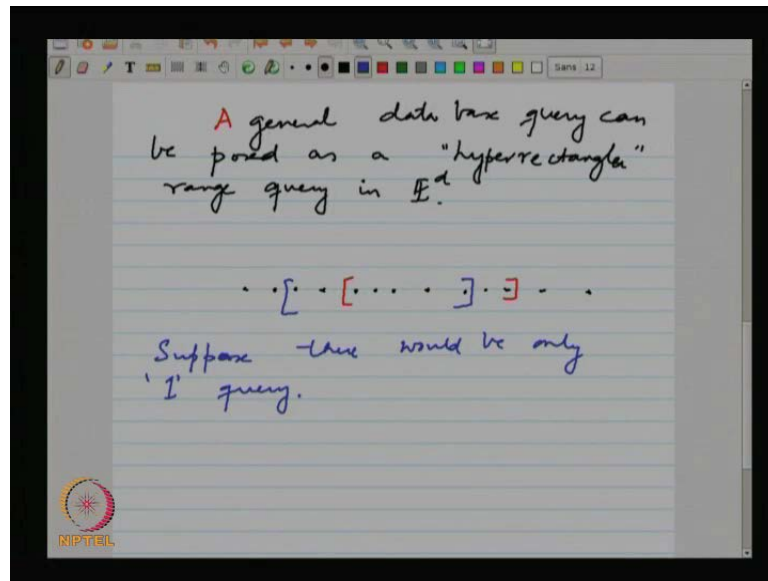 Sans 12
A general data base query can
be posed as a "hyperrectangular"
range query in E^d.
[ [ ] ]
Suppose there would be only
'1' query.
NPTEL